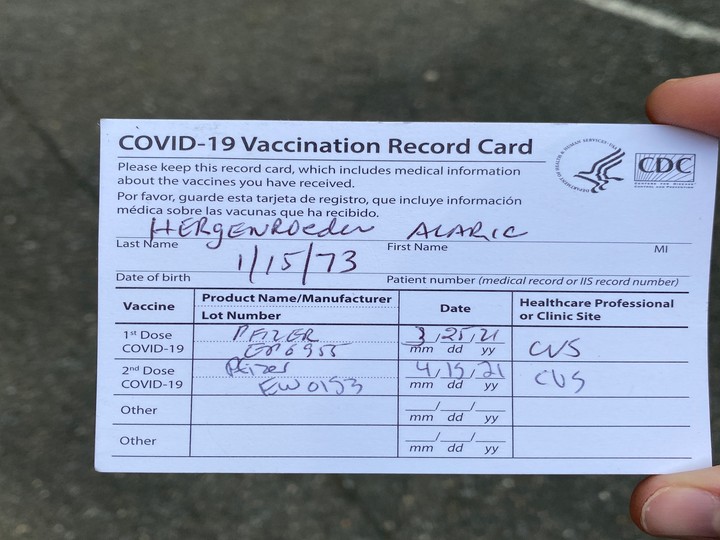 COVID-19 Vaccination Record Card
Please keep this record card, which includes medical information
about the vaccines you have received.
Por favor, guarde esta tarjeta de registro, que incluye información
médica sobre las vacunas que ha recibido.
CDC
HERgENROeder ALARIC
Last Name First Name MI
1/15/73
Date of birth Patient number (medical record or IIS record number)
Vaccine Product Name/Manufacturer Date Healthcare Professional
Lot Number or Clinic Site
1st Dose PFIZER 3/25/21 CVS
COVID-19 mm dd yy
2nd Dose Pfizer 4/15/21 CVS
COVID-19 EW0153 mm dd yy
Other mm dd yy
Other mm dd yy